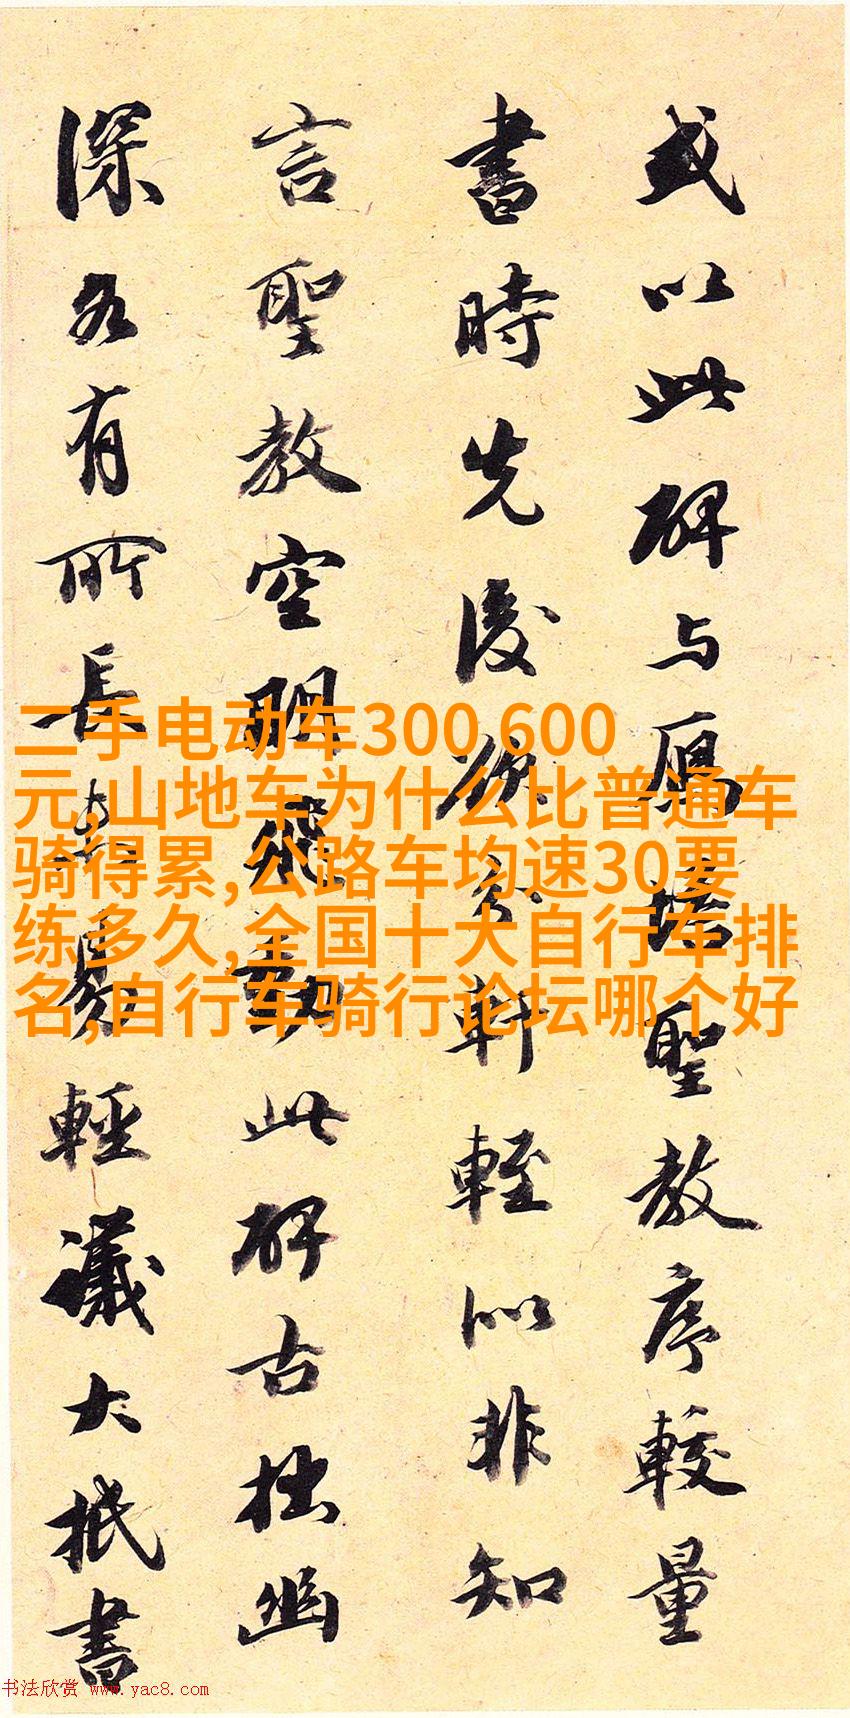 或以此碑与雁塔聖教序較量
書時先後欲分軒輊似非知
言聖教空明飛動此碑古拙幽
深各有所長未易輕議大抵書
二手电动车300 600
元,山地车为什么比普通车
骑得累,公路车均速30要
练多久,全国十大自行车排
名,自行车骑行论坛哪个好
书法欣赏 www.yac8.com